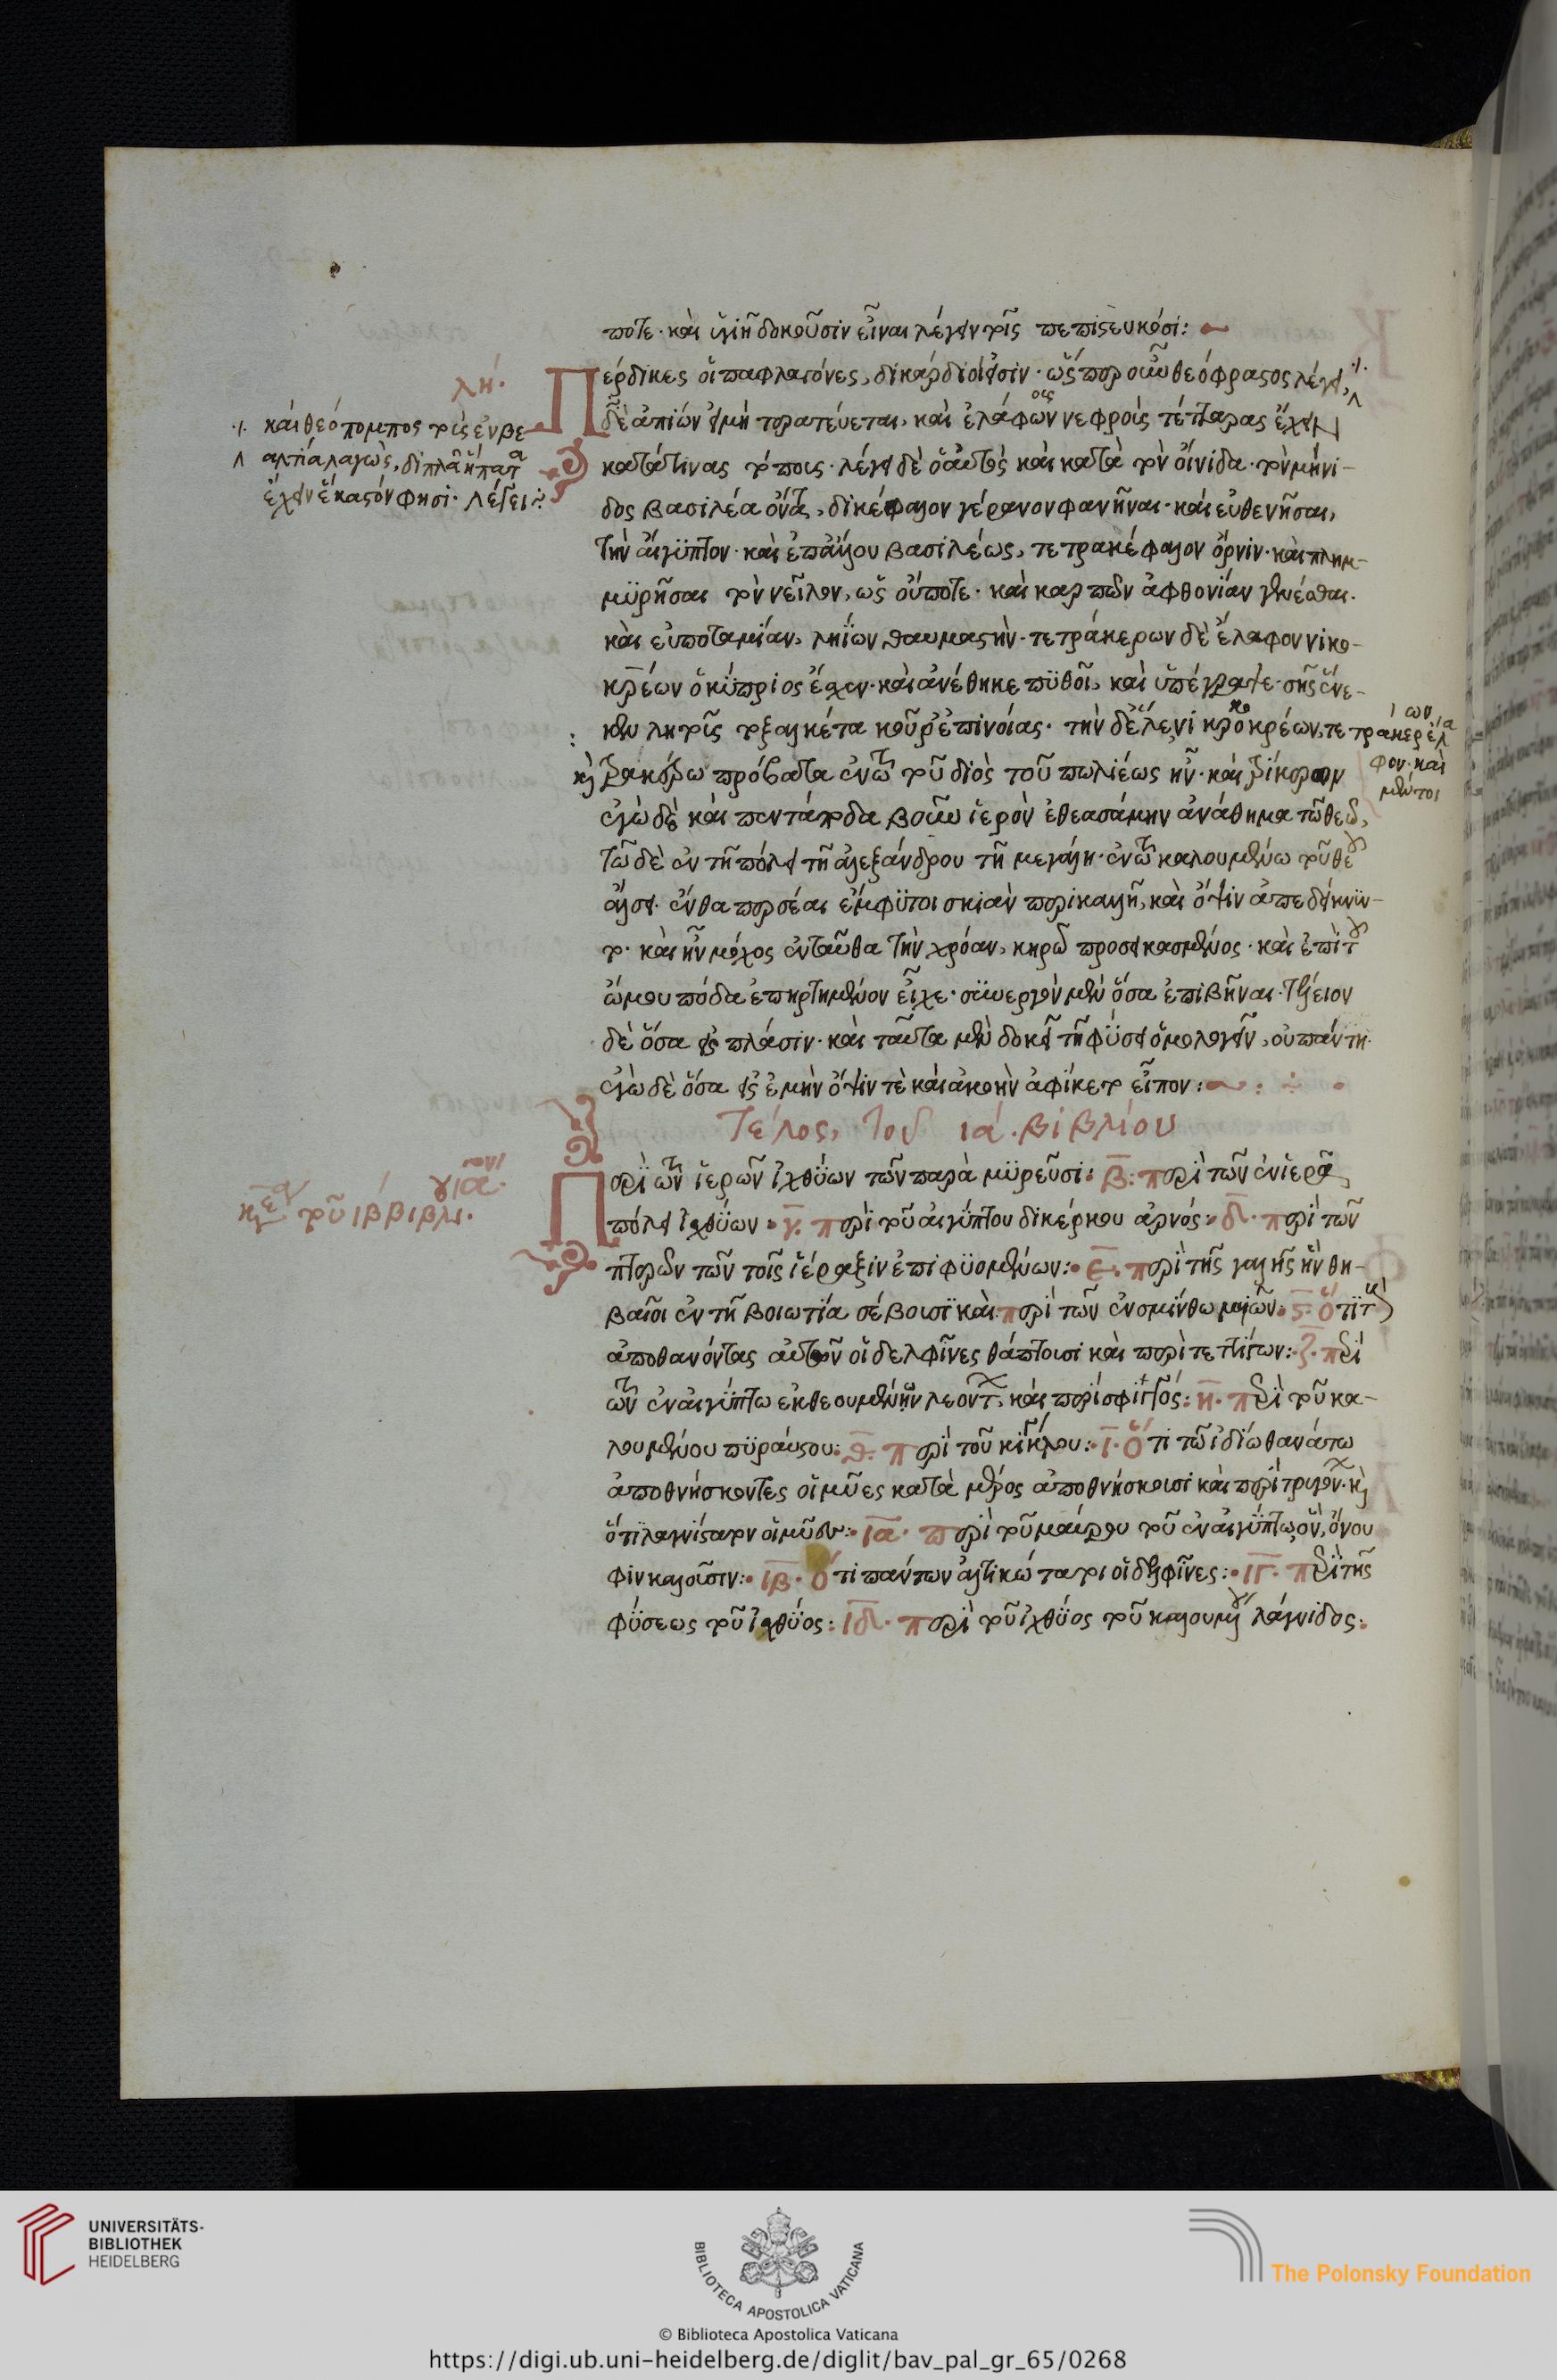 ποτε· καὶ ὑγιῆ δοκοῦσιν εἶναι λέγειν τοῖς πεπιστευκόσι:
λη΄.
Πέρδικες οἱ παφλαγόνες, δικάρδιοί εἰσιν· ὥσπερ οὖν θεόφραστος λέγει,
·/· καὶ θεόπομπος τοὺς ἐν βι
σαλτία λαγὼς, διπλᾶ ἥπατα
ἔχειν ἕκαστόν φησι. λέγει
δὲ ἀπίων εἰ μὴ τερατεύεται, καὶ ἐλάφους νεφροὺς τέτταρας ἔχειν
κατά τινας τόπους· λέγει δὲ ὁ αὐτὸς καὶ κατὰ τὸν οἰνίδα· τὸν μήνι-
δος βασιλέα ὄντα, δικέφαλον γέρανον φανῆναι· καὶ εὐθενῆσαι,
τὴν αἴγυπτον· καὶ ἐπ' ἄλλου βασιλέως, τετρακέφαλον ὄρνιν· καὶ πλημ-
μυρῆσαι τὸν νεῖλον, ὡς οὔποτε· καὶ καρπῶν ἀφθονίαν γενέσθαι·
καὶ εὐποταμίαν, ληΐων θαυμαστὴν· τετράκερων δὲ ἔλαφον νικο-
κρέων ὁ κύπριος ἔσχεν· καὶ ἀνέθηκε πυθοῖ, καὶ ὑπέγραψε· σῆς ἕνε-
κεν λητοῖς τοξαλκέτα κοῦρ' ἐπινοίας· τὴν δ' ἕλε νικοκρέων, τετράκερων ἔλα
φον· καὶ
μέντοι
κὶ τετρακέρω πρόβατα ἐν τῶ τοῦ διὸς τοῦ πολιέως ἦν· καὶ τρίκερων
ἐγὼ δὲ καὶ πεντάποδα βοῦν ἱερὸν ἐθεασάμην ἀνάθημα τῶ θεῶ,
τῶ δὲ ἐν τῆ πόλει τῆ ἀλεξάνδρου τῆ μεγάλη· ἐν τῶ καλουμένω τοῦ θεοῦ
ἄλσει· ἔνθα περσέαι ἐμφυτοι σκιὰν περικαλῆ, καὶ ὄψιν ἀπεδείκνυν-
το· καὶ ἦν μόσχος ἐνταῦθα τὴν χρόαν, κηρῶ προσεικασμένος· καὶ ἐπὶ τοῦ
ὤμου πόδα ἐπηρτημένον εἶχε· συνεργὸν μὲν ὅσα ἐπιβῆναι· τέλειον
δὲ ὅσα εἰς πλάσιν· καὶ ταῦτα μὲν δοκεῖ τῆ φύσει ὁμολογεῖν, οὐ πάντη·
ἐγὼ δὲ ὅσα εἰς ἐμὴν ὄψιν τὲ καὶ ἀκοὴν ἀφίκετο εἶπον:
Τέλος, τοῦ ια΄. βιβλίου
τοῦ ιβ βιβλι.
Περὶ τῶν ἱερῶν ἰχθύων τῶν παρὰ μυρεῦσι: β: περὶ τῶν ἐν ἱερᾶ
πόλει ἰχθύων· γ. περὶ τοῦ αἰγύπτου δικέρκου ἀρνός· δ. περὶ τῶν
πτερῶν τῶν τοῖς ἱέραξιν ἐπιφυομένων: ε. περὶ τῆς γαλῆς ἣν θη-
βαῖοι ἐν τῆ βοιωτία σέβουσι καὶ περὶ τῶν ἐν σμίνθω μυῶν· ς: ὅτι τοὺς
ἀποθανόντας αὐτῶν οἱ δελφῖνες θάπτουσι καὶ περὶ τεττίγων: ζ. περὶ
τῶν ἐν αἰγύπτω ἐκθεουμένων λεόντων, καὶ περὶ σφιγγός: η. περὶ τοῦ κα-
λουμένου πυραύστου: θ. περὶ τοῦ κίγκλου: ι. Ὅτι τῶ ἰδίω θανάτω
ἀποθνήσκοντες οἱ μῦες κατὰ μέρος ἀποθνήσκουσι καὶ περὶ τρυγόνων· κὶ
ὅτι λαγνίστατον οἱ μῦες: ια. περὶ τοῦ μαύρου τοῦ ἐν αἰγύπτω, ὃν, ὄνου
φιν καλοῦσιν: ιβ. Ὅτι πάντων ἁλτικώτατοι οἱ δελφῖνες: ιγ. περὶ τῆς
φύσεως τοῦ ἰχθύος: ιδ. περὶ τοῦ ἰχθύος τοῦ καλουμένου λάγνιδος:
UNIVERSITÄTS-
BIBLIOTHEK
HEIDELBERG
BIBLIOTECA APOSTOLICA VATICANA
The Polonsky Foundation
© Biblioteca Apostolica Vaticana
https://digi.ub.uni-heidelberg.de/diglit/bav_pal_gr_65/0268